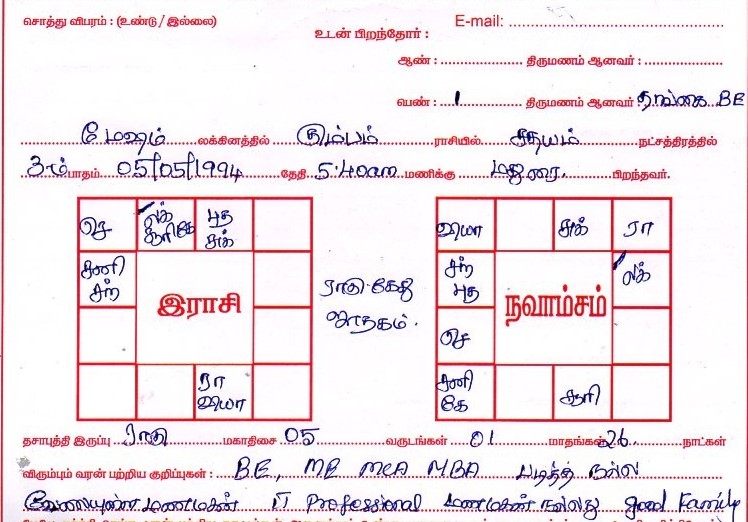 சொத்து விபரம் : (உண்டு / இல்லை)
E-mail: ........................
உடன் பிறந்தோர் :
ஆண் : ............ திருமணம் ஆனவர் : ............
பெண் : 1 திருமணம் ஆனவர் தங்கை BE
மேஷம் லக்கினத்தில் கும்பம் ராசியில் சதயம் நட்சத்திரத்தில்
3-ம் பாதம் 05/05/1994 தேதி 5.40am மணிக்கு மதுரை. பிறந்தவர்.
செ லக் சூரி கே புத சுக்
சனி சந்
இராசி
ரா வியா
ராகு கேது
ஜாதகம்.
வியா சுக் ரா
சந் புத லக்
நவாம்சம்
செ
சனி கே சூரி
தசாபுத்தி இருப்பு ராகு மகாதிசை 05 வருடங்கள் 01 மாதங்கள் 26 நாட்கள்
விரும்பும் வரன் பற்றிய குறிப்புகள் : B.E, ME MCA MBA படித்த நல்ல
வேலையுள்ள மணமகன் IT Professional மணமகன் நல்லது good Family